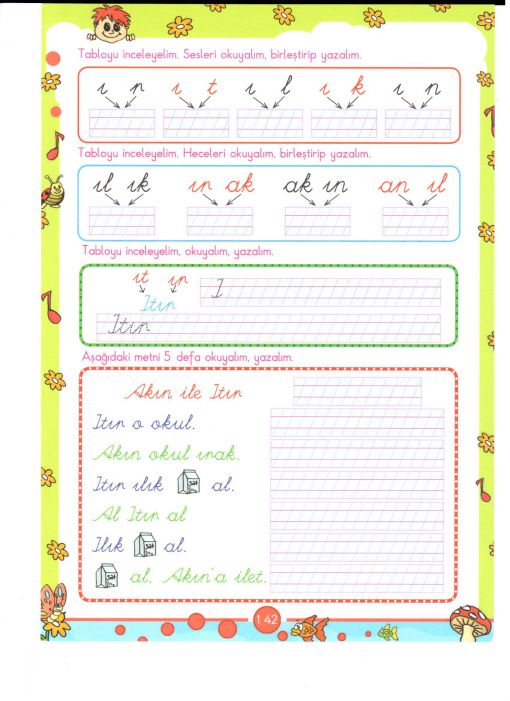 Tabloyu inceleyelim. Sesleri okuyalım, birleştirip yazalım.
ı n ı t ı l ı k ı n
Tabloyu inceleyelim. Heceleri okuyalım, birleştirip yazalım.
ıl ık ın ak ak ın an ıl
Tabloyu inceleyelim, okuyalım, yazalım.
ıt ın I
Itın
Itın
Aşağıdaki metni 5 defa okuyalım, yazalım.
Akın ile Itın
Itın o okul.
Akın okul ırak.
Itın ılık Süt al.
Al Itın al
Ilık Süt al.
Süt al. Akın'a ilet.
142